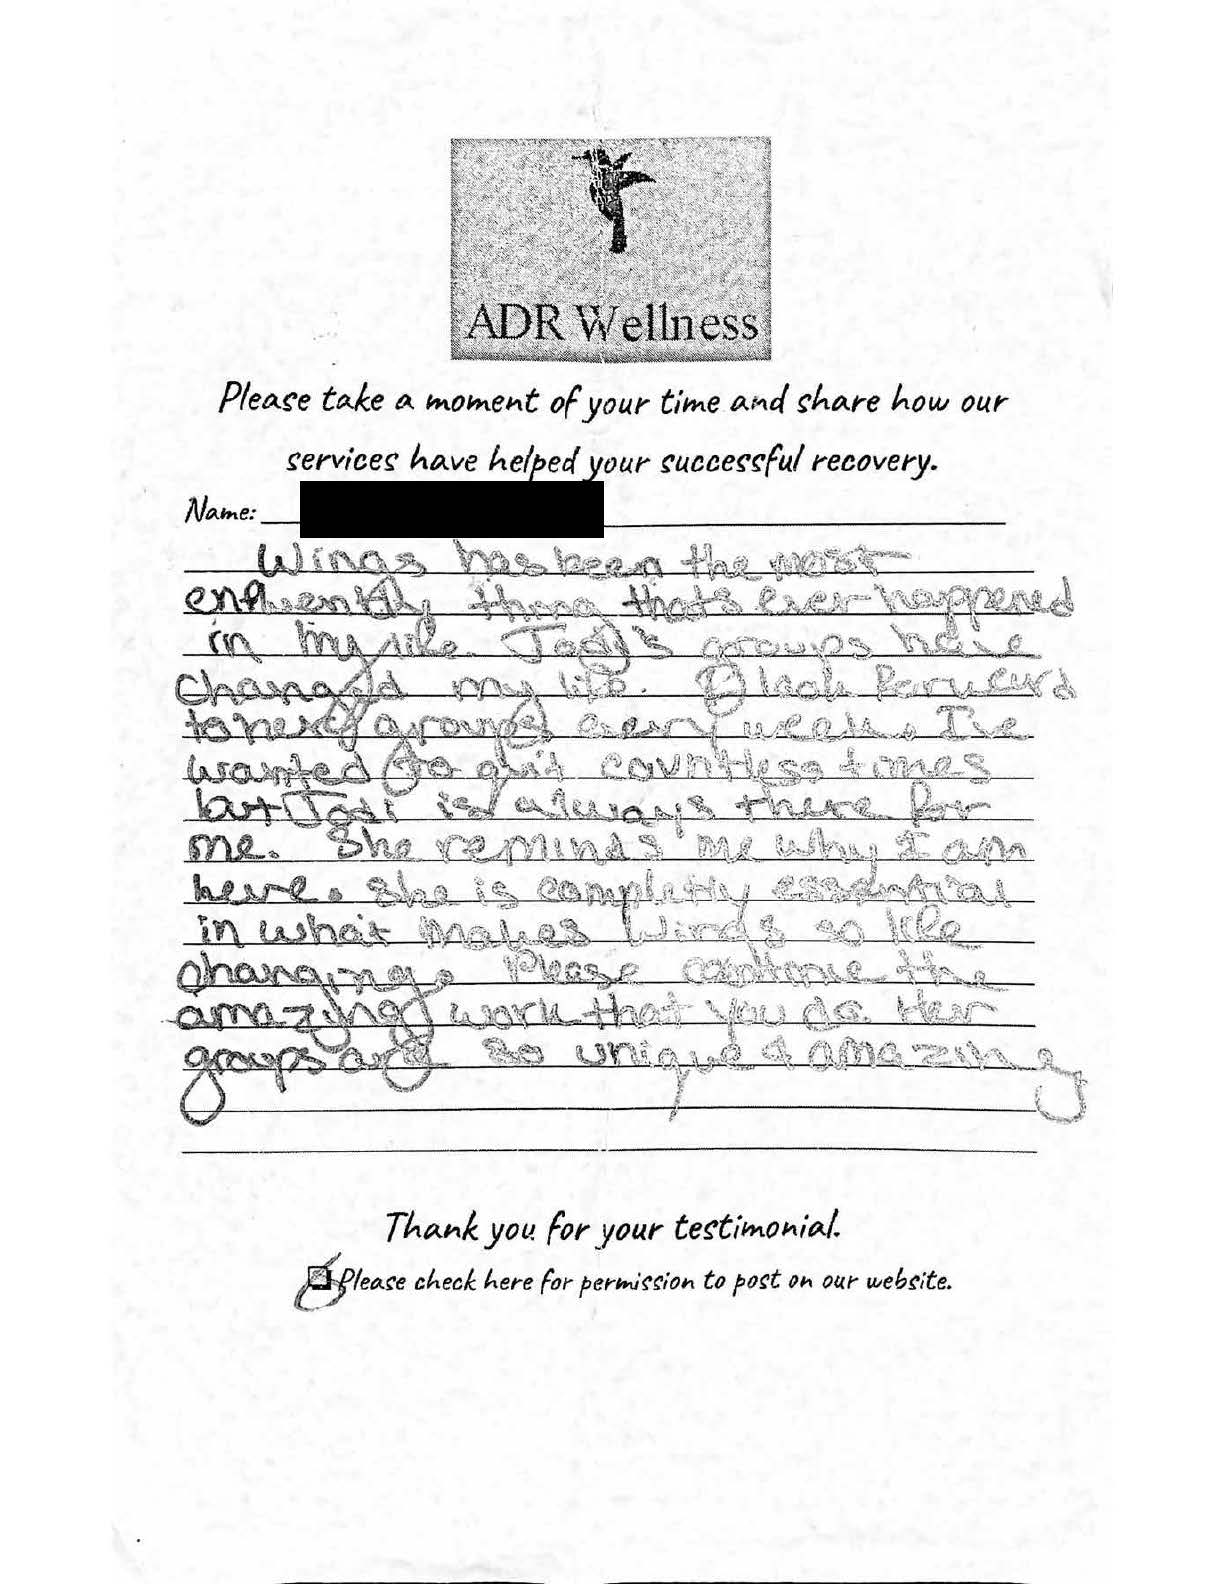 ADR Wellness
Please take a moment of your time and share how our
services have helped your successful recovery.
Name:
Wings has been the most
enfluentily thing that's ever happened
in my life. Jodi's groups have
changed my life. I look forward
to her groups every week. I've
wanted to quit countless times
but Jodi is always there for
me. She reminds me why I am
here. She is completly essential
in what makes Wings so life
changing. Please continue the
amazing work that you do. Her
groups are so unique & amazing
Thank you for your testimonial.
Please check here for permission to post on our website.